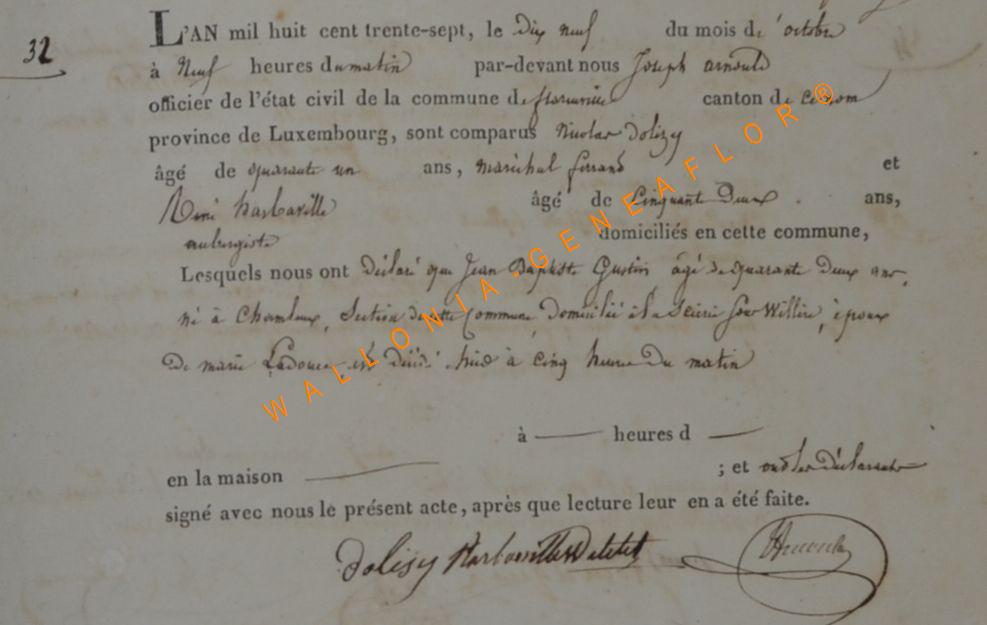 32
L'AN mil huit cent trente-sept, le dix neuf du mois d'octobre
à Neuf heures du matin par-devant nous Joseph arnould
officier de l'état civil de la commune de canton de
province de Luxembourg, sont comparus Nicolas Dolizy
âgé de quarante un ans, maréchal ferrand et
René harbaville âgé de Cinquant Deux ans,
aubergiste domiciliés en cette commune,
Lesquels nous ont déclaré que Jean Baptiste Gustin âgé de quarante deux ans,
né à Chameleux, Section de cette Commune Domicilié à la Williers, époux
De marie Ladouce est décédé à cinq heures du matin
à heures d
en la maison ; et ont les déclarants
signé avec nous le présent acte, après que lecture leur en a été faite.
Dolisy
WALLONIA.GENEAFLOR®